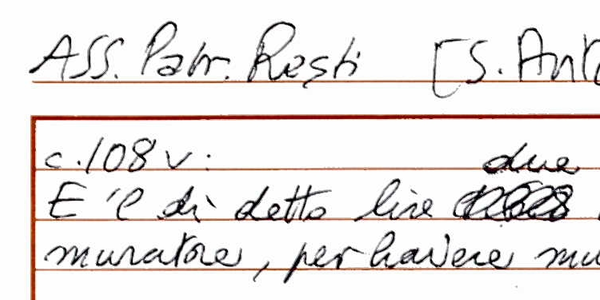 ASS. Patr. Resti [S. Anto
c. 108 v:
due
E 'l dì detto lire
muratore, per havere mu